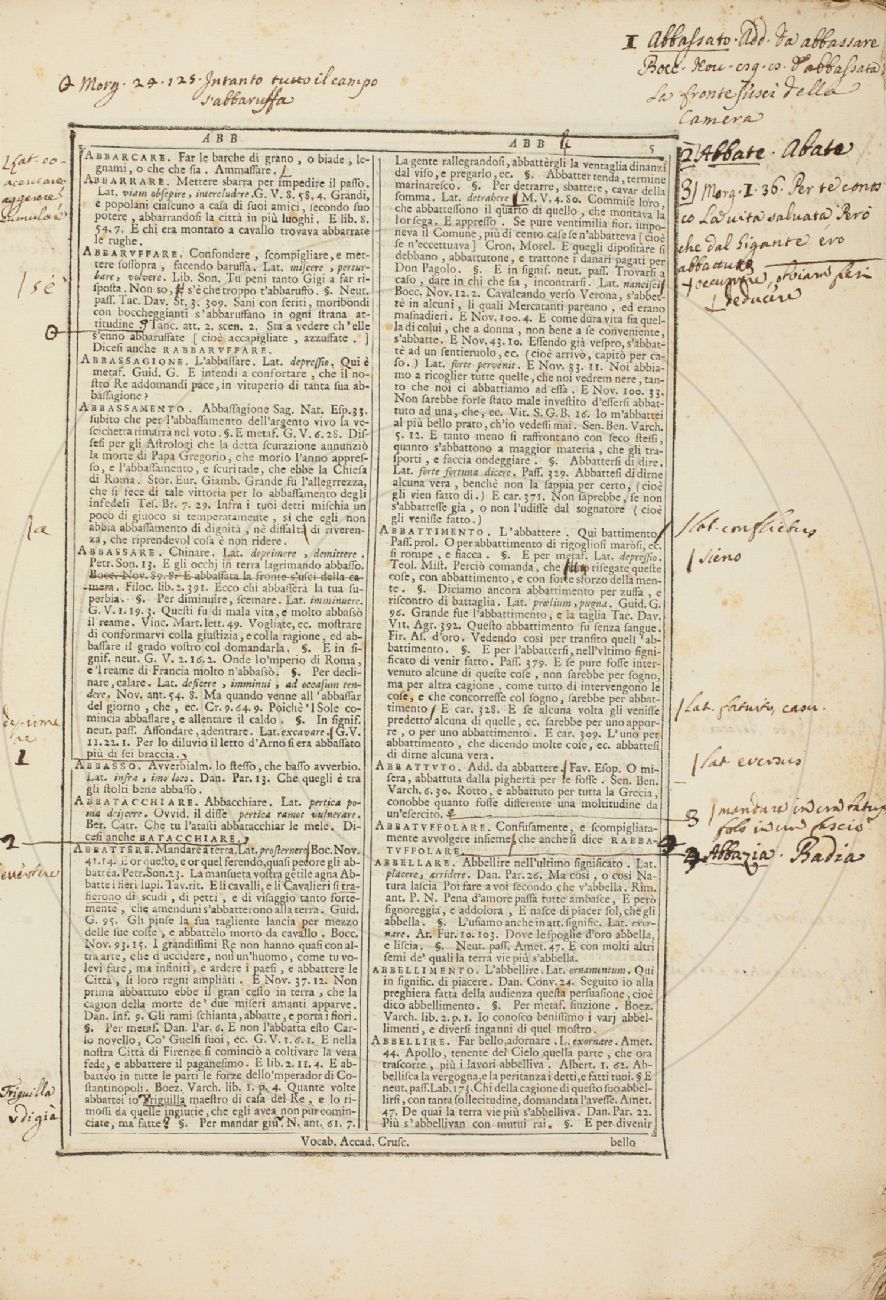 1 Abbassato. Add. da abbassare
Bocc. Nov. d'abbassata
la fronte s'uscì della
Camera
Morg. 24. 125. Intanto tutto il campo
s'abbaruffa
ABB
ABB
5
ABBARCARE. Far le barche di grano, o biade, le-
gnami, o che che sia. Ammassare.
ABBARRARE. Mettere sbarra per impedire il passo.
Lat. viam obsepire, intercludere. G. V. 8. 58. 4. Grandi,
e popolani ciascuno a casa di suoi amici, secondo suo
potere, abbarrandosi la città in più luoghi. E lib. 8.
54. 7. E chi era montato a cavallo trovava abbarrate
le rughe.
ABBARVFFARE. Confondere, scompigliare, e met-
tere sossopra, facendo baruffa. Lat. miscere, pertur-
bare, volvere. Lib. Son. Tu peni tanto Gigi a far ri-
sposta. Non so, s'è che troppo t'abbaruffo. §. Neut.
pass. Tac. Dav. St. 3. 309. Sani con feriti, moribondi
con boccheggianti s'abbaruffano in ogni strana at-
titudine. Tanc. att. 2. scen. 2. Sta a vedere ch'elle
s'enno abbaruffate [ cioè accapigliate, azzuffate. ]
Dicesi anche RABBARVFFARE.
ABBASSAGIONE. L'abbassare. Lat. depressio. Qui è
metaf. Guid. G. E intendi a confortare, che il no-
stro Re addomandi pace, in vituperio di tanta sua ab-
bassagione?
ABBASSAMENTO. Abbassagione Sag. Nat. Esp. 33.
subito che per l'abbassamento dell'argento vivo la ve-
scichetta rimarrà nel voto. §. E metaf. G. V. 6. 28. Dis-
sesi per gli Astrologi che la detta scurazione annunziò
la morte di Papa Gregorio, che morìo l'anno appres-
so, e l'abbassamento, e scuritade, che ebbe la Chiesa
di Roma. Stor. Eur. Giamb. Grande fu l'allegrezza,
che si fece di tale vittoria per lo abbassamento degli
infedeli Tes. Br. 7. 29. Infra i tuoi detti mischia un
poco di giuoco sì temperatamente, sì che egli non
abbia abbassamento di dignità, nè dissalta di riveren-
za, che riprendevol cosa è non ridere.
ABBASSARE. Chinare. Lat. deprimere, demittere.
Petr. Son. 13. E gli occhi in terra lagrimando abbasso.
Bocc. Nov. 89. 8. E abbassata la fronte s'uscì della ca-
mera. Filoc. lib. 2. 391. Ecco chi abbasserà la tua su-
perbia. §. Per diminuire, scemare. Lat. imminuere.
G. V. 1. 19. 3. Questi fu di mala vita, e molto abbassò
il reame. Vinc. Mart. lett. 49. Vogliate, ec. mostrare
di conformarvi colla giustizia, e colla ragione, ed ab-
bassare il grado vostro col domandarla. §. E in si-
gnif. neut. G. V. 2. 16. 2. Onde lo'mperio di Roma,
e'l reame di Francia molto n'abbassò. §. Per decli-
nare, calare. Lat. deficere, imminui, ad occasum ten-
dere. Nov. ant. 54. 8. Ma quando venne all'abbassar
del giorno, che, ec. Cr. 9. 64. 9. Poichè'l Sole co-
mincia abbassare, e allentare il caldo. §. In signif.
neut. pass. Affondare, adentrare. Lat. excavare. G. V.
11. 22. 1. Per lo diluvio il letto d'Arno si era abbassato
più di sei braccia.
ABBASSO. Avverbialm. lo stesso, che basso avverbio.
Lat. infra, imo loco. Dan. Par. 13. Che quegli è tra
gli stolti bene abbasso.
ABBATACCHIARE. Abbacchiare. Lat. pertica po-
ma deijcere. Ovvid. il disse pertica ramos vulnerare.
Ber. Catr. Che tu l'atusi abbatacchiar le mele. Di-
cesi anche BATACCHIARE.
ABBATTERE. Mandare a terra. Lat. prosternere Boc. Nov.
41. 14. E or questo, e or quel ferendo, quasi pecore gli ab-
battea. Petr. Son. 23. La mansueta vostra gentile agna Ab-
batte i fieri lupi. Tav. rit. E li cavalli, e li Cavalieri si tra-
fierono di scudi, di petti, e di visaggio tanto forte-
mente, che amenduni s'abbatterono alla terra. Guid.
G. 95. Gli pinse la sua tagliente lancia per mezzo
delle sue coste, e abbattèlo morto da cavallo. Bocc.
Nov. 93. 15. I grandissimi Re non hanno quasi con al-
tra arte, che d'uccidere, non un'huomo, come tu vo-
levi fare, ma infiniti, e ardere i paesi, e abbattere le
Città, sì loro regni ampliàti. E Nov. 37. 12. Non
prima abbattuto ebbe il gran cesto in terra, che la
cagion della morte de' due miseri amanti apparve.
Dan. Inf. 9. Gli rami schianta, abbatte, e porta i fiori.
§. Per metaf. Dan. Par. 6. E non l'abbatta esto Car-
lo novello, Co' Guelfi suoi, ec. G. V. 1. 6. 1. E nella
nostra Città di Firenze si cominciò a coltivare la vera
fede, e abbattere il paganesimo. E lib. 2. 11. 4. E ab-
battèo in tutte le parti le forze dello'mperador di Co-
stantinopoli. Boez. Varch. lib. 1. p. 4. Quante volte
abbattei io Friguilla maestro di casa del Re, e lo ri-
mossi da quelle ingiurie, che egli avea non pur comin-
ciate, ma fatte? §. Per mandar giù. N. ant. 61. 7.
La gente rallegrandosi, abbattèrgli la ventaglia dinanzi
dal viso, e pregarlo, ec. §. Abbatter tenda, termine
marinaresco. §. Per detrarre, sbattere, cavar della
somma. Lat. detrahere M. V. 4. 80. Commise loro,
che abbattessono il quarto di quello, che montava la
lor sega. E appresso. Se pure ventimilia fior. impo-
neva il Comune, più di cento case se n'abbatteva [ cioè
se n'eccettuava] Cron. Morel. E quegli dipositare si
debbano, abbattutone, e trattone i danari pagati per
Don Pagolo. §. E in signif. neut. pass. Trovarsi a
caso, dare in chi che sia, incontrarsi. Lat. nancisci
Bocc. Nov. 12. 2. Cavalcando verso Verona, s'abbat-
tè in alcuni, li quali Mercatanti pareano, ed erano
masnadieri. E Nov. 100. 4. E come dura vita sia quel-
la di colui, che a donna, non bene a se conveniente,
s'abbatte. E Nov. 43. 10. Essendo già vespro, s'abbat-
tè ad un sentieruolo, ec. (cioè arrivò, capitò per ca-
so.) Lat. forte pervenit. E Nov. 83. 11. Noi abbia-
mo a ricoglier tutte quelle, che noi vedrem nere, tan-
to che noi ci abbattiamo ad essa. E Nov. 100. 33.
Non sarebbe forse stato male investito d'essersi abbat-
tuto ad una, che, ec. Vit. S. G. B. 16. Io m'abbattei
al più bello prato, ch'io vedessi mai. Sen. Ben. Varch.
5. 12. E tanto meno si raffrontano con seco stessi,
quanto s'abbattono a maggior materia, che gli tra-
sporti, e faccia ondeggiare. §. Abbattersi di dire.
Lat. forte fortuna dicere. Pass. 329. Abbattesi di dirne
alcuna vera, benchè non la sappia per certo, (cioè
gli vien fatto di.) E car. 371. Non saprebbe, se non
s'abbattesse gia, o non l'udisse dal sognatore (cioè
gli venisse fatto.)
ABBATTIMENTO. L'abbattere. Qui battimento
Pass. prol. O per abbattimento di rigogliosi marosi, ec.
si rompe, e fiacca. §. E per metaf. Lat. depressio.
Teol. Mist. Perciò comanda, che risegate queste
cose, con abbattimento, e con forte sforzo della men-
te. §. Diciamo ancora abbattimento per zuffa, e
riscontro di battaglia. Lat. prœlium, pugna. Guid. G.
96. Grande fue l'abbattimento, e la taglia Tac. Dav.
Vit. Agr. 392. Questo abbattimento fu senza sangue.
Fir. As. d'oro. Vedendo così per transito quell'ab-
battimento. §. E per l'abbattersi, nell'vltimo signi-
ficato di venir fatto. Pass. 379. E se pure fosse inter-
venuto alcune di queste cose, non sarebbe per sogno,
ma per altra cagione, come tutto dì intervengono le
cose, e che concorresse col sogno, sarebbe per abbat-
timento E car. 328. E se alcuna volta gli venisse
predetto alcuna di quelle, ec. sarebbe per uno appor-
re, o per uno abbattimento. E car. 309. L'uno per
abbattimento, che dicendo molte cose, ec. abbattesi
di dirne alcuna vera.
ABBATTVTO. Add. da abbattere. Fav. Esop. O mi-
sera, abbattuta dalla pigherta per le fosse. Sen. Ben.
Varch. 6. 30. Rotto, e abbattuto per tutta la Grecia,
conobbe quanto fosse differente una moltitudine da
un'esercito.
ABBATVFFOLARE. Confusamente, e scompigliata-
mente avvolgere insieme, che anche si dice RABBA-
TVFFOLARE
ABBELLARE. Abbellire nell'ultimo significato. Lat.
placere, arridere. Dan. Par. 26. Ma così, o così Na-
tura lascia Poi fare a voi secondo che v'abbella. Rim.
ant. P. N. Pena d'amore passa tutte ambasce, E però
signoreggia, e addolora, E nasce di piacer sol, che gli
abbella. §. L'usiamo anche in att. signific. Lat. exor-
nare. Ar. Fur. 10. 103. Dove le spoglie d'oro abbella,
e liscia. §. Neut. pass. Amet. 47. E con molti altri
semi de' quali la terra vie più s'abbella.
ABBELLIMENTO. L'abbellire. Lat. ornamentum. Qui
in signific. di piacere. Dan. Conv. 24. Seguito io alla
preghiera fatta della audienza questa persuasione, cioè
dico abbellimento. §. Per metaf. finzione. Boez.
Varch. lib. 2. p. 1. Io conosco benissimo i varj abbel-
limenti, e diversi inganni di quel mostro.
ABBELLIRE. Far bello, adornare. L. exornare. Amet.
44. Apollo, tenente del Cielo quella parte, che ora
trascorre, più i lavori abbelliva. Albert. 1. 62. Ab-
bellisca la vergogna, e la peritanza i detti, e fatti tuoi. § E
neut. pass. Lab. 173. Chi della cagione di questo suo abbel-
lirsi, con tanta sollecitudine, domandata l'avesse. Amet.
47. De quai la terra vie più s'abbelliva. Dan. Par. 22.
Più s'abbellivan con mutui rai. §. E per divenir
Vocab. Accad. Crusc.
bello
Lat. co-
acervare
aggerere
cumulare
sè
la
deprime
re
1
2
evertere
Friguilla
vdigià
2 Abbate. Abate
3 Morg. 1. 36. Per te conos
co La vita salvata Però
che dal Gigante ero
abbattuto
deducere
Lat. conflictus
sieno
Lat. fatuito, casu.
Lat. eversus
3 mandare in un fatuf
folo in un fascio
4 Abbazia. Badia